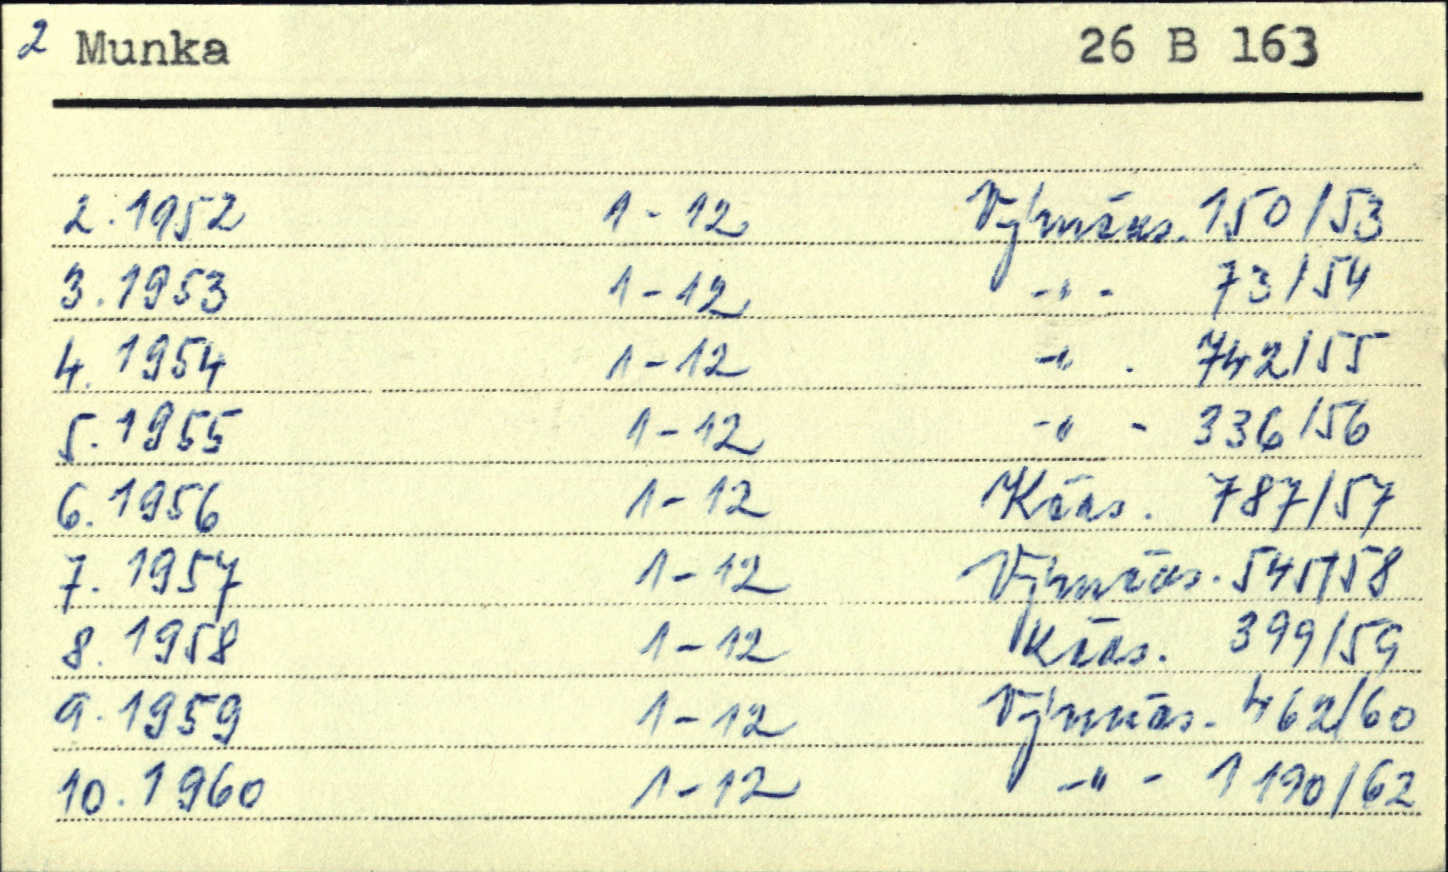 2 Munka 26 B 163
2. 1952 1-12 Výmčas. 150/53
3. 1953 1-12 -"- 73/54
4. 1954 1-12 -"- 742/55
5. 1955 1-12 -"- 336/56
6. 1956 1-12 787/57
7. 1957 1-12 545/58
8. 1958 1-12 399/59
9. 1959 1-12 462/60
10. 1960 1-12 -"- 1190/62